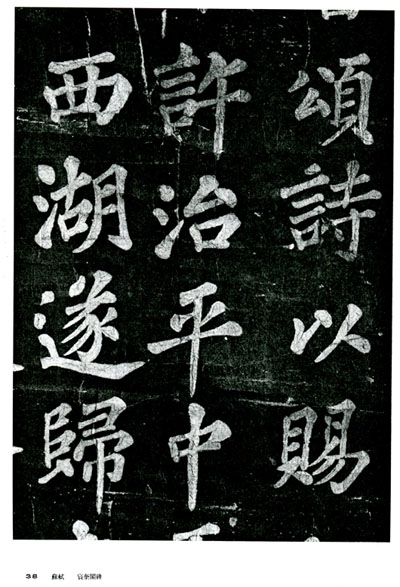 頌詩以賜
許治平中
西湖遂歸
38 蘇軾 宸奎閣碑